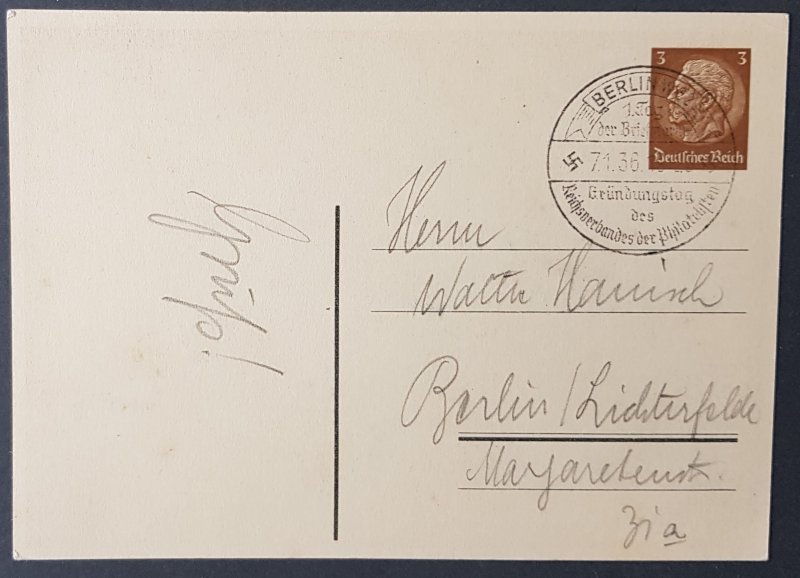 3 3
Deutsches Reich
BERLIN
1. Tag
der Brief
7.1.36.
Gründungstag
des
Reichsverbandes der Philatelisten
Herrn
Walter Hanisch
Berlin/Lichterfelde
Margaretenstr.